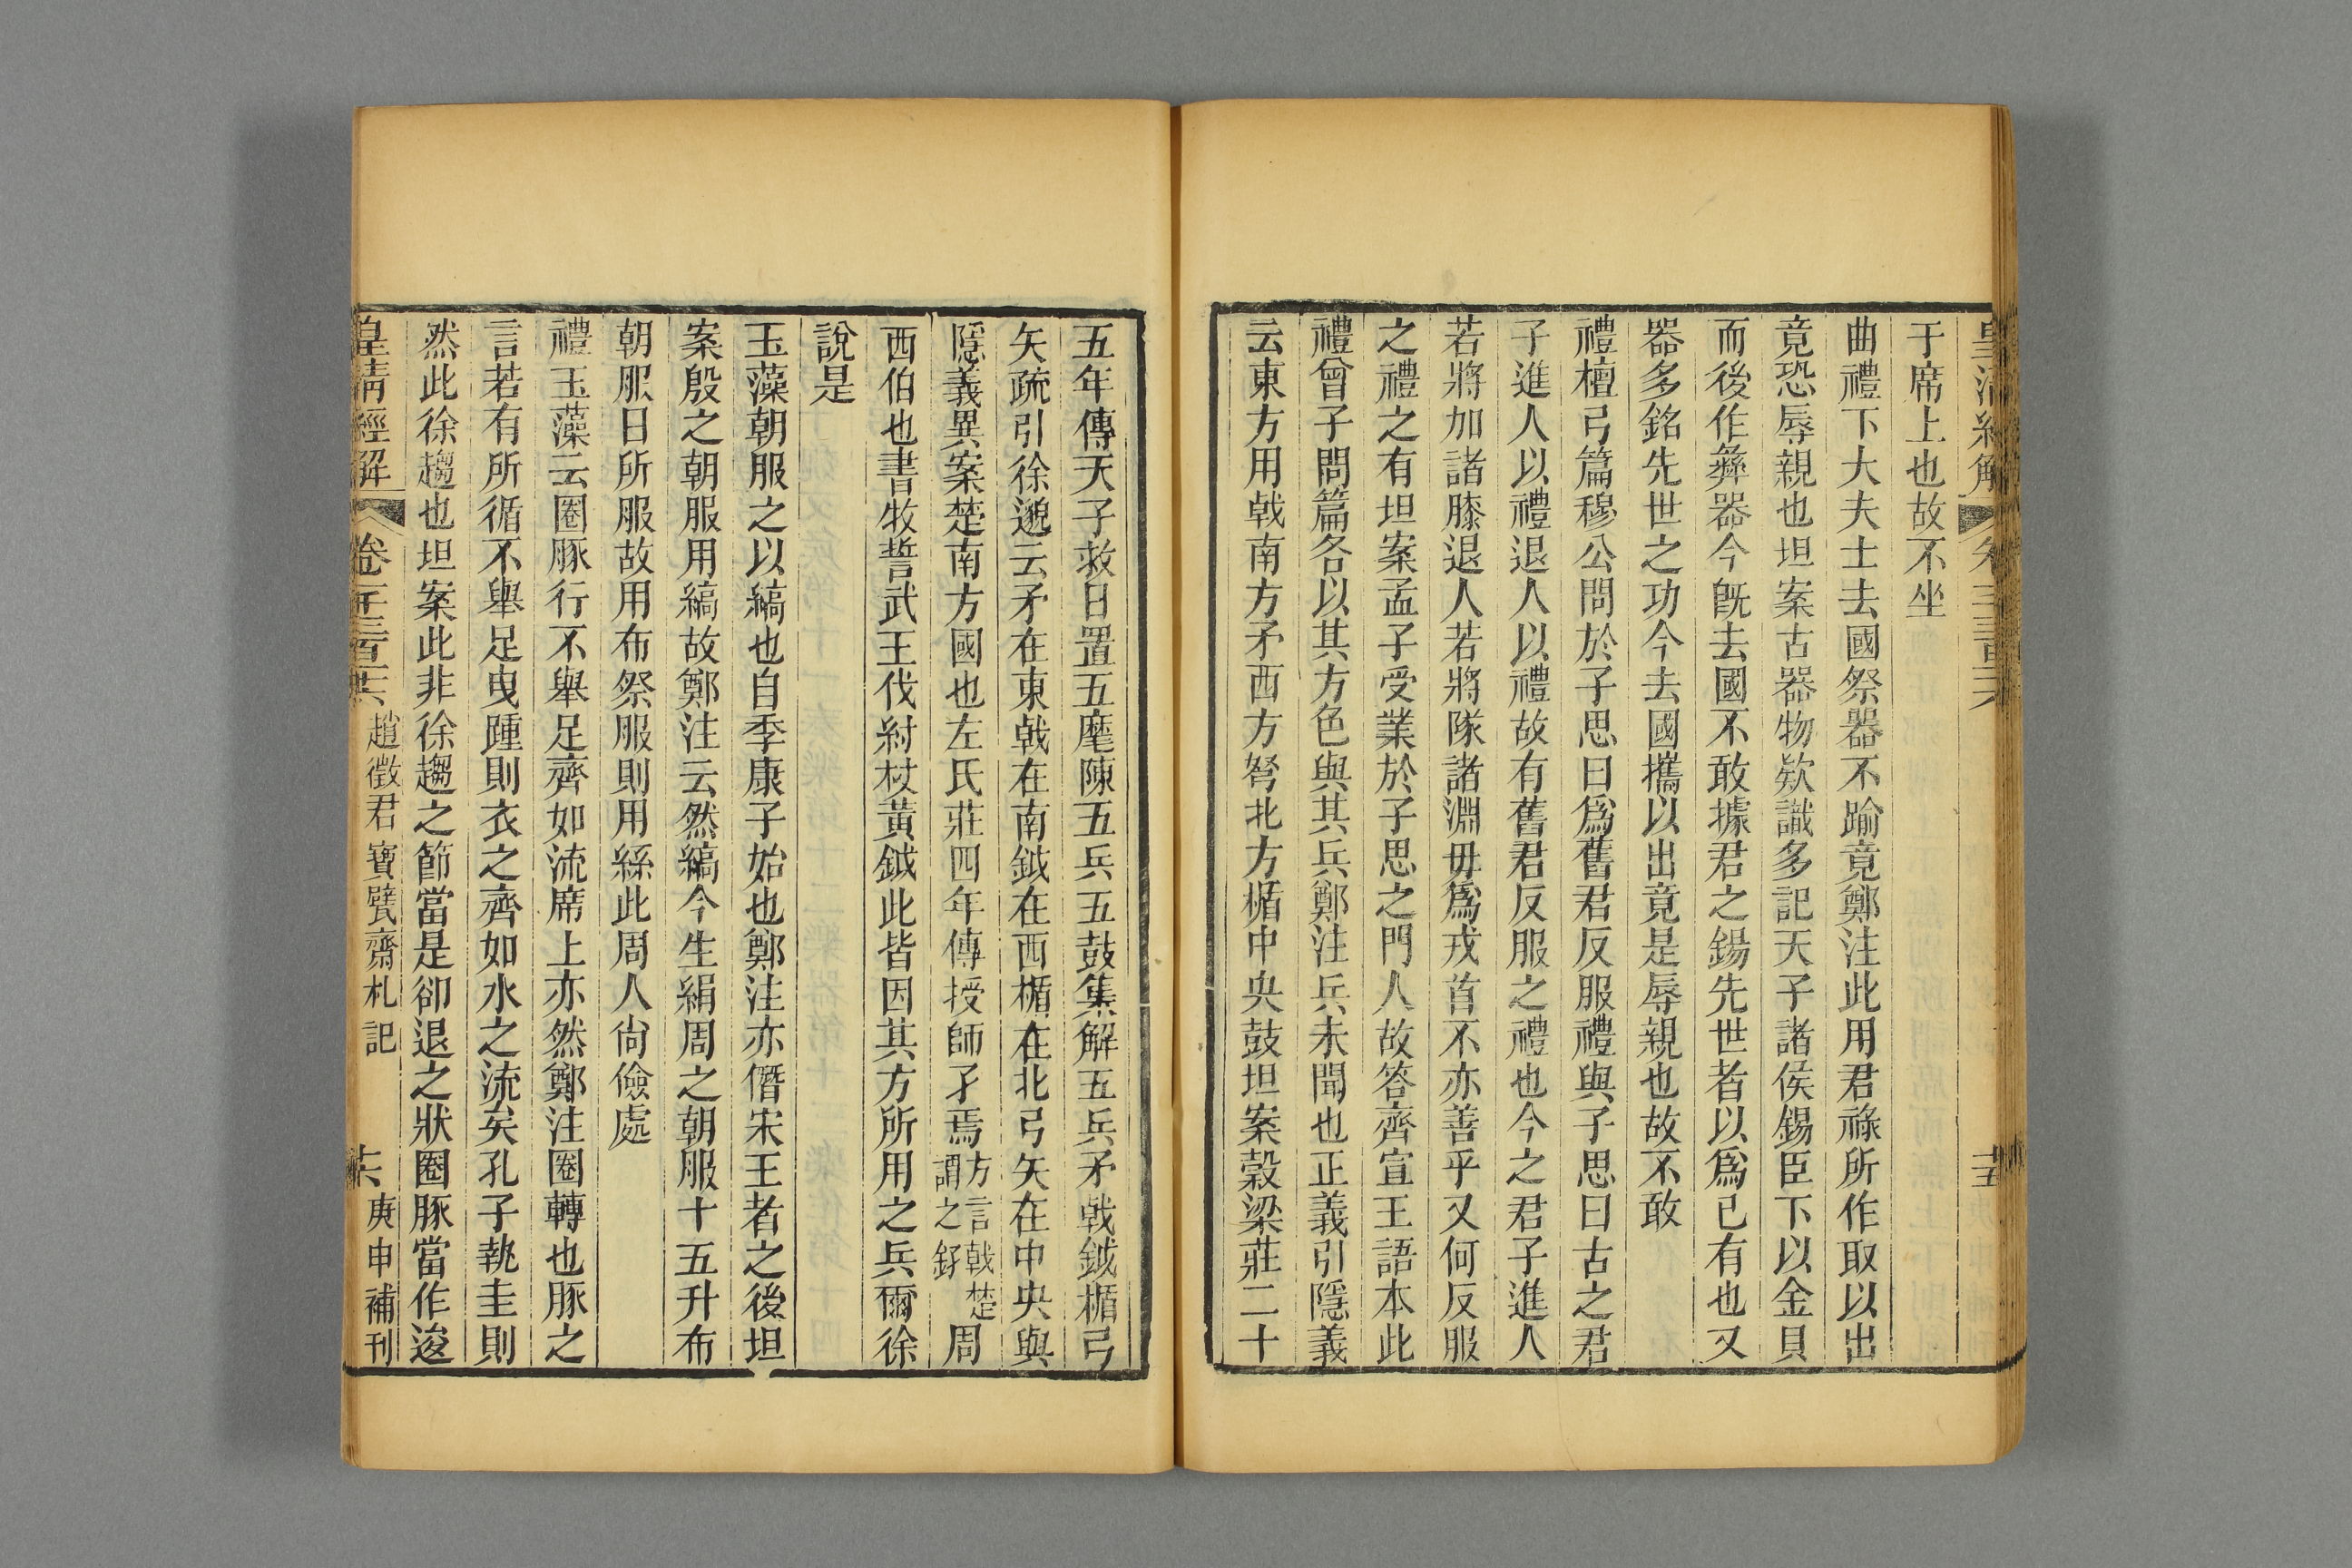 皇清經解 卷三百三六 十五
于席上也故不坐
曲禮下大夫士去國祭器不踰竟鄭注此用君祿所作取以出
竟恐辱親也坦案古器物欵識多記天子諸侯錫臣下以金貝
而後作彝器今旣去國不敢據君之錫先世者以爲已有也又
器多銘先世之功今去國攜以出竟是辱親也故不敢
禮檀弓篇穆公問於子思曰爲舊君反服禮與子思曰古之君
子進人以禮退人以禮故有舊君反服之禮也今之君子進人
若將加諸膝退人若將隊諸淵毋爲戎首不亦善乎又何反服
之禮之有坦案孟子受業於子思之門人故答齊宣王語本此
禮曾子問篇各以其方色與其兵鄭注兵未聞也正義引隱義
云東方用戟南方矛西方弩北方楯中央鼓坦案穀梁莊二十
五年傳天子救日置五麾陳五兵五鼓集解五兵矛戟鉞楯弓
矢疏引徐邈云矛在東戟在南鉞在西楯在北弓矢在中央與
隱義異案楚南方國也左氏莊四年傳授師孑焉方言戟楚謂之釨周
西伯也書牧誓武王伐紂杖黃鉞此皆因其方所用之兵爾徐
說是
玉藻朝服之以縞也自季康子始也鄭注亦僭宋王者之後坦
案殷之朝服用縞故鄭注云然縞今生絹周之朝服十五升布
朝服日所服故用布祭服則用絲此周人尙儉處
禮玉藻云圈豚行不舉足齊如流席上亦然鄭注圈轉也豚之
言若有所循不舉足曳踵則衣之齊如水之流矣孔子執圭則
然此徐趨也坦案此非徐趨之節當是卻退之狀圈豚當作逡
皇清經解 卷三百十六 趙徵君寶甓齋札記 十六 庚申補刊